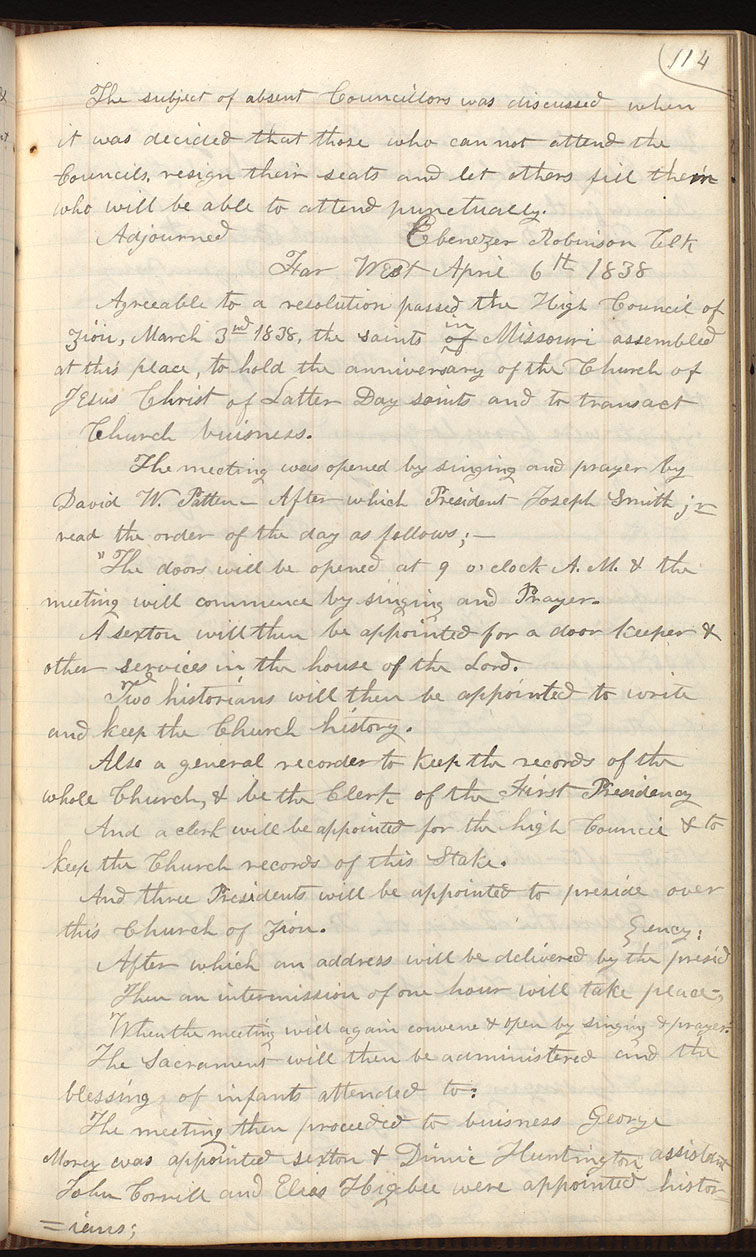 114
The subject of absent Councillors was discussed when
it was decided that those who can not attend the
Councils, resign their seats and let others fill their
who will be able to attend punctually.
Adjourned Ebenezer Robinson Clk
Far West April 6th 1838
Agreeable to a resolution passed the High Council of
Zion, March 3nd 1838, the saints of in Missouri assembled
at this place, to hold the anniversary of the Church of
Jesus Christ of Latter Day saints and to transact
Church buisness.
The meeting was opened by singing and prayer by
David W. Patten— After which President Joseph Smith jr
read the order of the day as follows;—
"The doors will be opened at 9 o'clock A. M. & the
meeting will commence by singing and Prayer.
A sexton will then be appointed for a door keeper &
other services in the house of the Lord.
Two historians will then be appointed to write
and keep the Church history.
Also a general recorder to keep the records of the
whole Church, & be the Clerk of the First Presidency
And a clerk will be appointed for the high Council & to
keep the Church records of this Stake.
And three Presidents will be appointed to preside over
this Church of Zion.
After which an address will be delivered by the presid
ency:
Then an intermission of one hour will take place,
When the meeting will again convene & open by singing & prayer.
The Sacrament will then be administered and the
blessing of infants attended to:
The meeting then proceeded to buisness George
Morey was appointed sexton & Dimic Huntington assistant
John Corrill and Elias Higbee were appointed histor-
=ians;